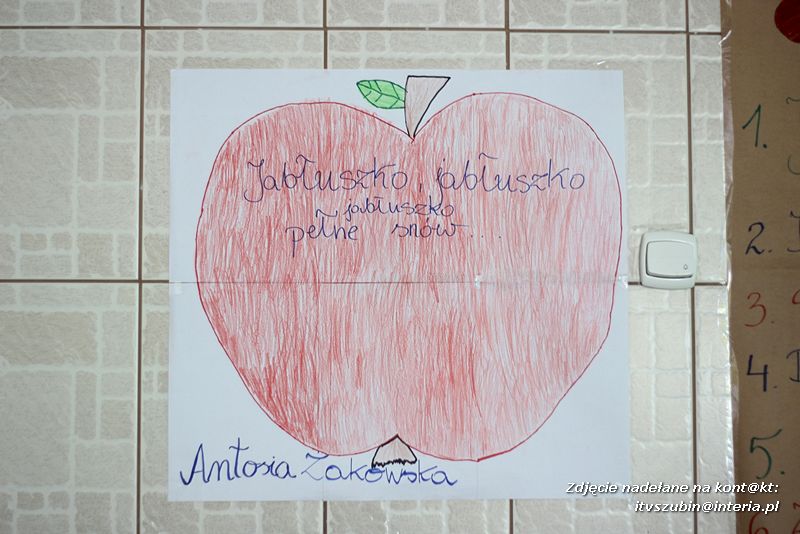 Jabłuszko, jabłuszko
jabłuszko
pełne snów....
Antosia Żakowska
1.
2.
3.
4.
5.
6.
Zdjęcie nadełane na kont@kt:
itvszubin@interia.pl